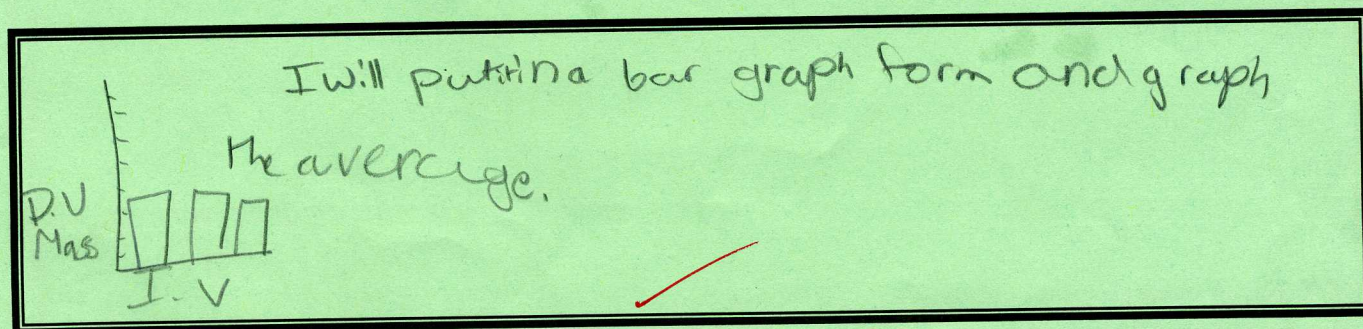 I will put it in a bar graph form and graph
the average.
D.V
Mass
I.V